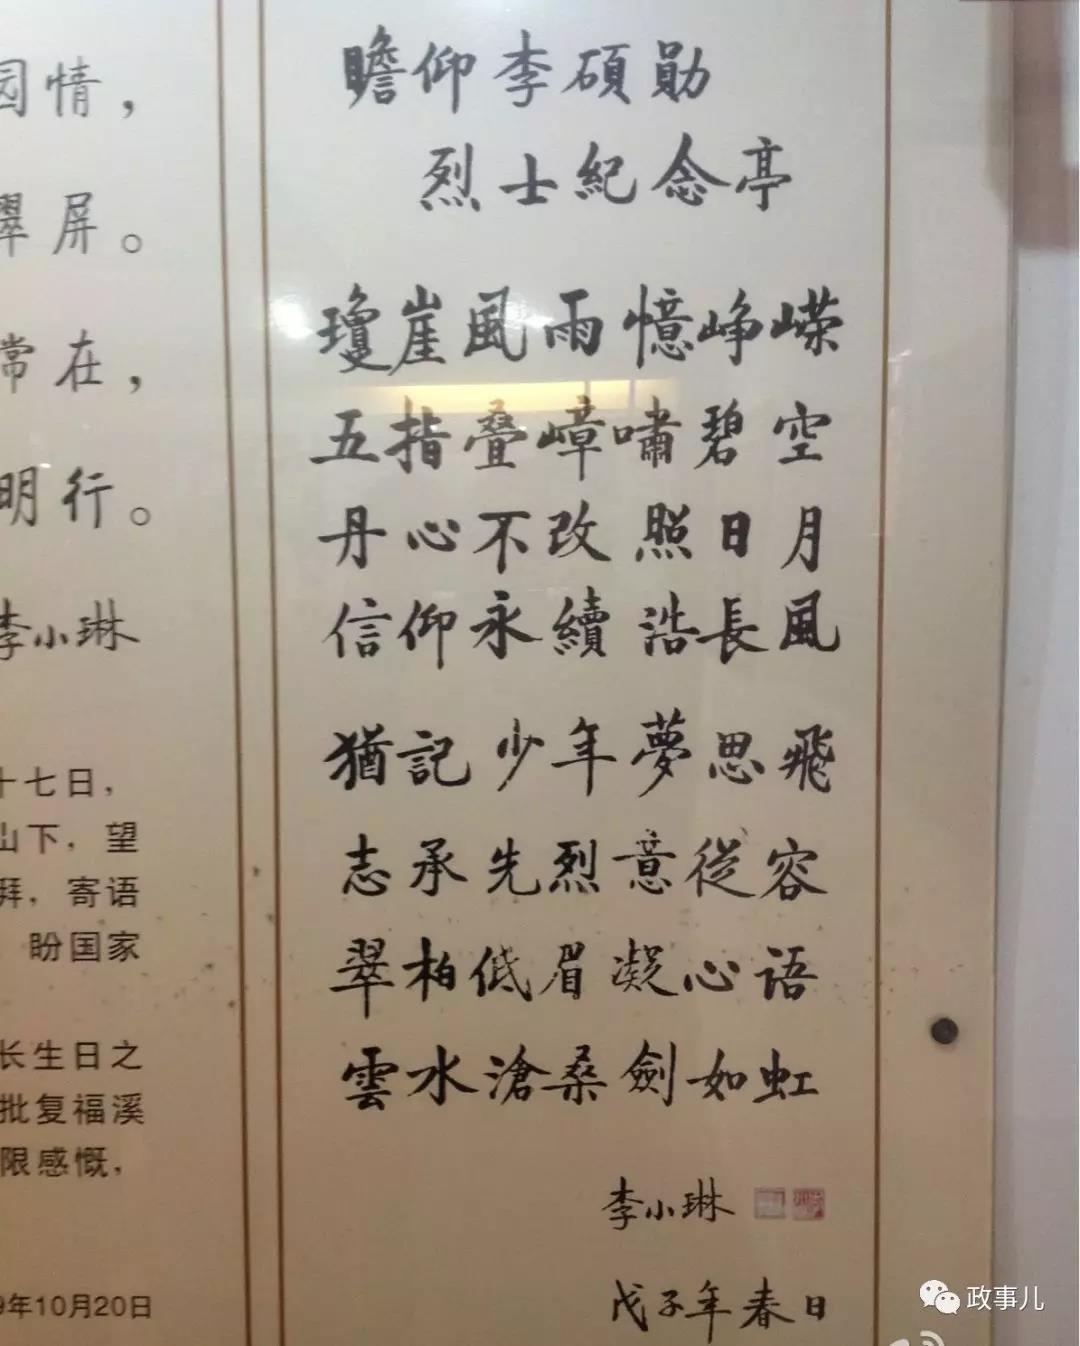 园情，
翠屏。
常在，
明行。
李小琳
十七日，
山下，望
拜，寄语
盼国家
长生日之
批复福溪
限感慨，
9年10月20日
瞻仰李碩勛
烈士紀念亭
瓊崖風雨憶峥嵘
五指叠嶂嘯碧空
丹心不改照日月
信仰永續浩長風
猶記少年夢思飛
志承先烈意從容
翠柏低眉凝心语
雲水滄桑劍如虹
李小琳
戊子年春日
政事儿